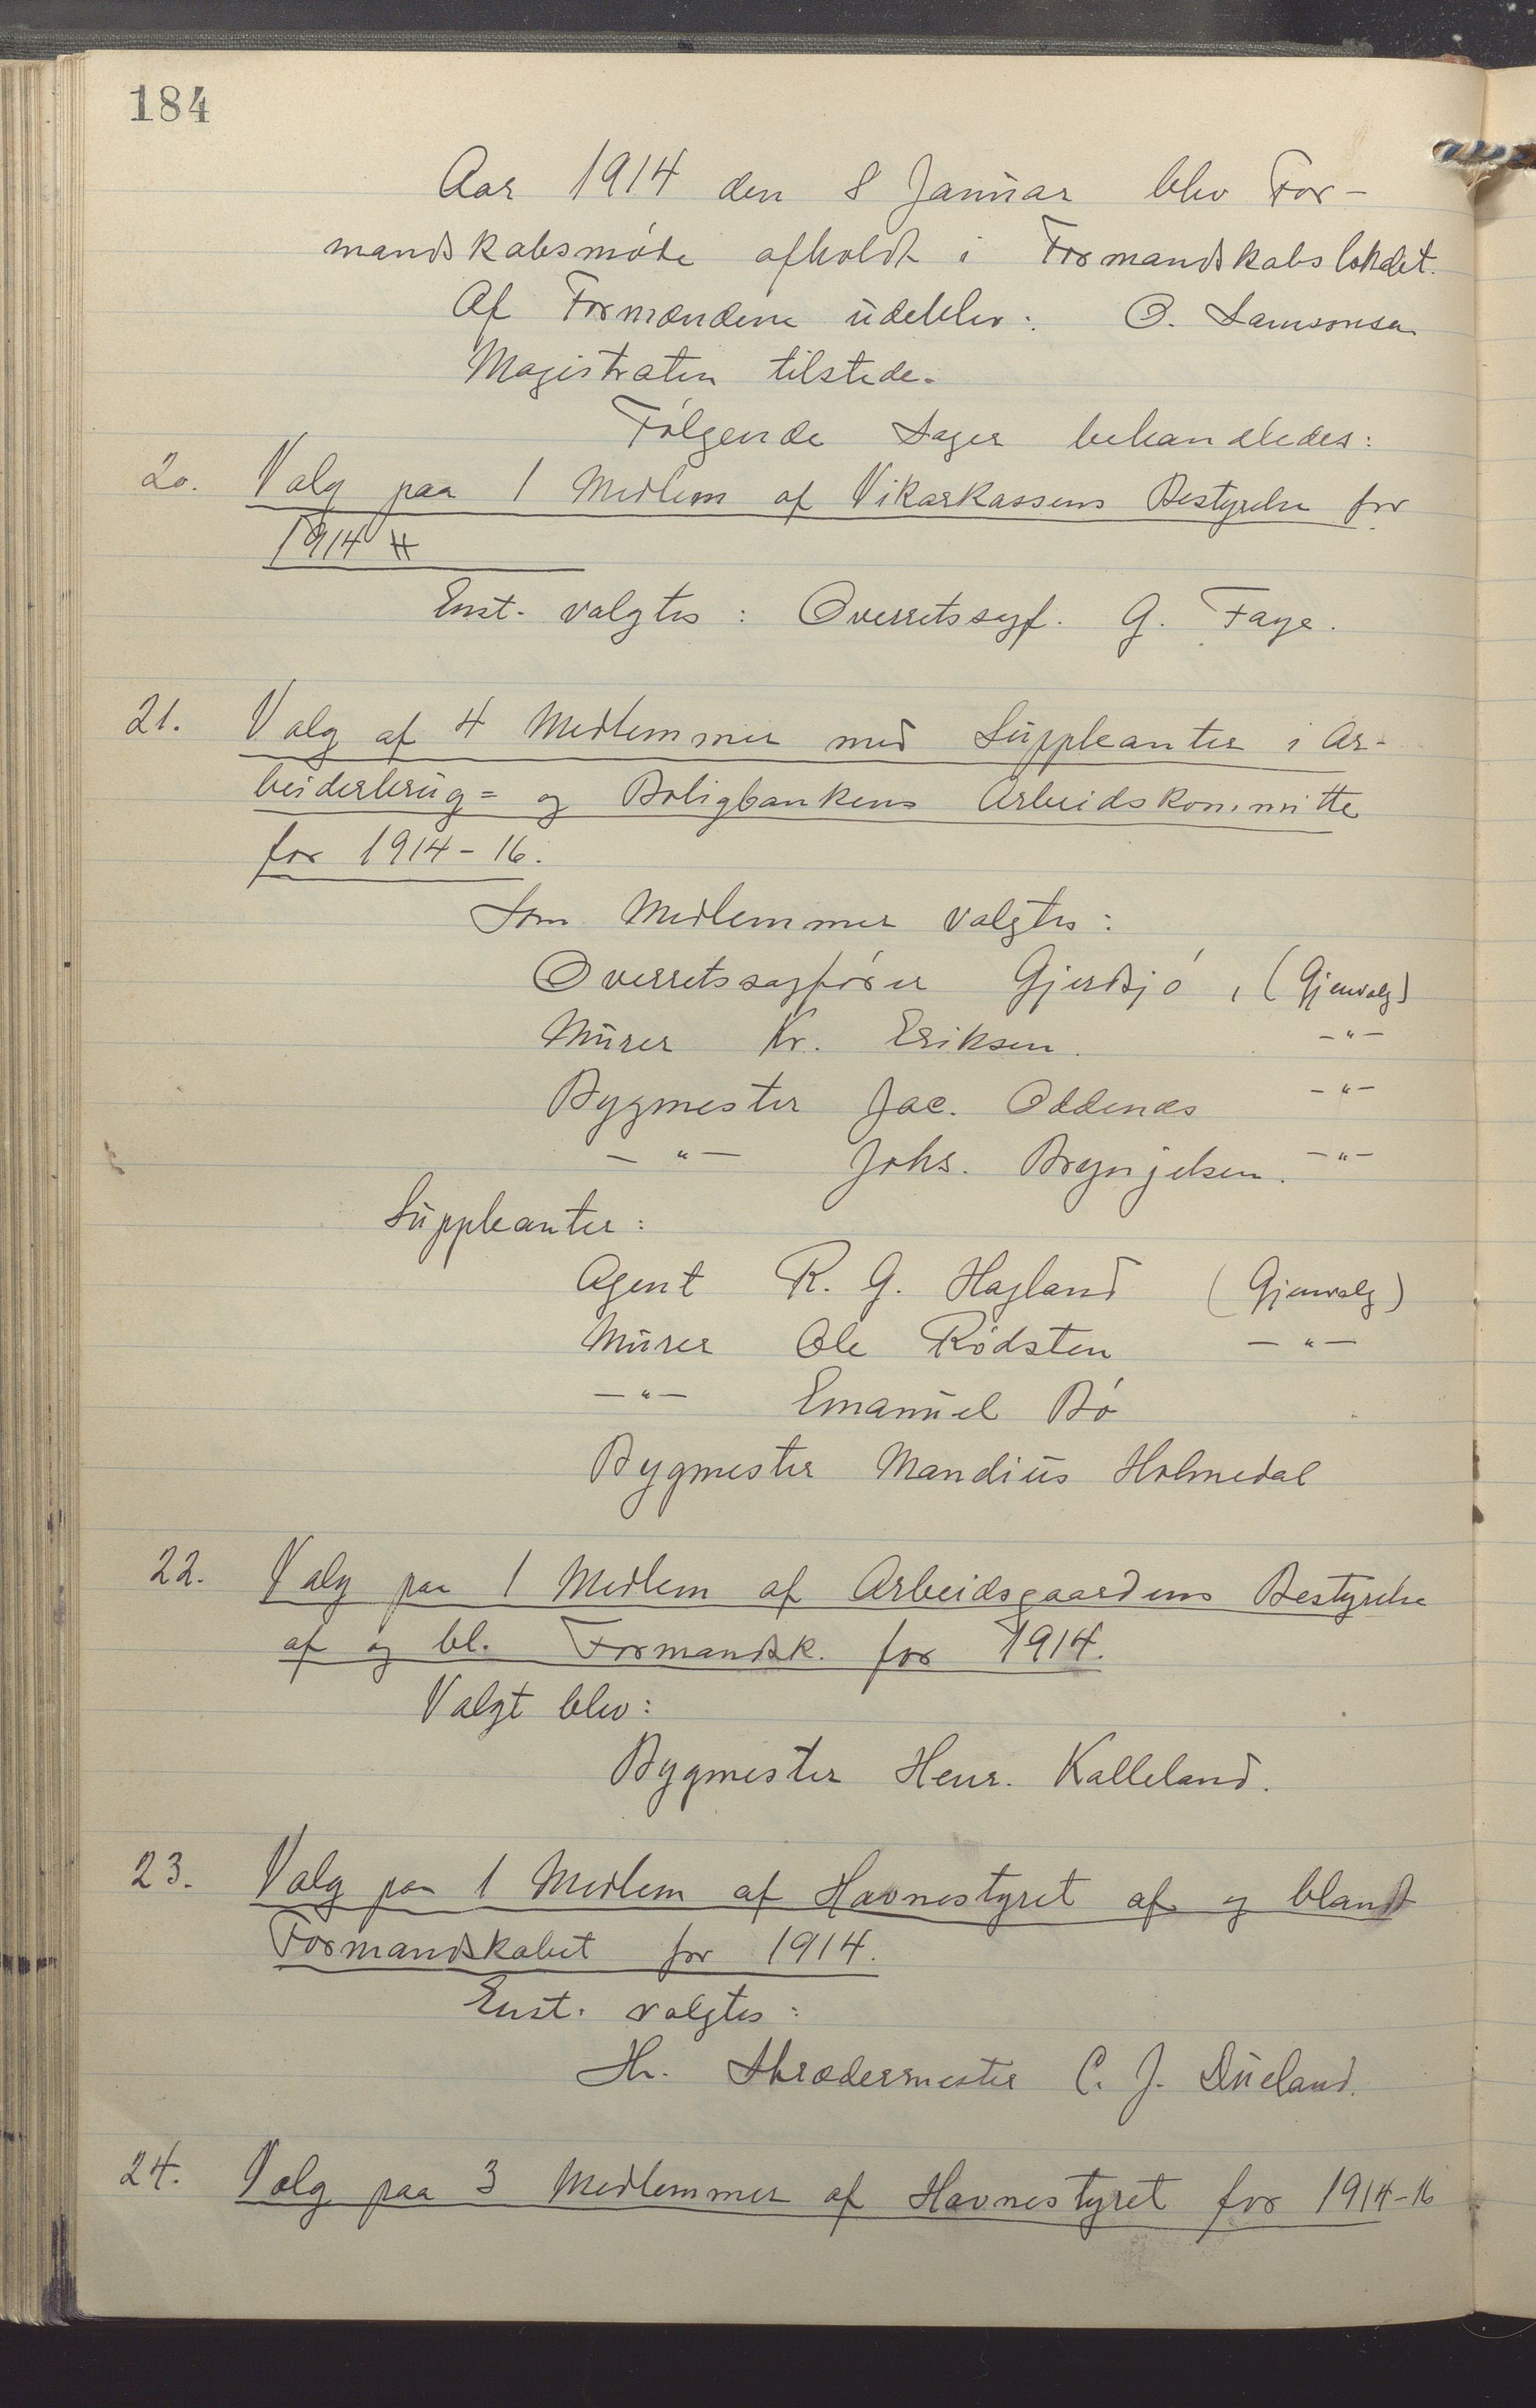 184
Aar 1914 den 8 Januar blev For-
mandskabsmöde afholdt i Formandskabslokalet.
Af Formændene udeblev: O. Samsonsen
Magistraten tilstede.
Følgende Sager behandledes:
20. Valg paa 1 Medlem af Vikarkassens Bestyrelse for
1914
Enst. valgtes: Overretssagf. G. Faye.
21. Valg af 4 Medlemmer med Suppleanter i Ar-
beiderbrug= og Boligbankens Arbeidskommitte
for 1914-16.
Som Medlemmer valgtes:
Overretssagfører Gjerdsjø, (Gjenvalg)
Murer Kr. Eriksen. -"-
Bygmester Jac. Oddenæs -"-
-"- Johs. Brynjelsen. -"-
Suppleanter:
Agent R. G. Hagland (Gjenvalg)
Murer Ole Rødsten -"-
-"- Emanuel Bø
Bygmester Mandius Holmedal
22. Valg paa 1 Medlem af Arbeidsgaardens Bestyrelse
af og bl. Formandsk. for 1914.
Valgt blev:
Bygmester Henr. Kalleland.
23. Valg paa 1 Medlem af Havnestyret af og blandt
Formandskabet for 1914.
Enst. valgtes:
Hr. Skrædermester C. J. Dueland.
24. Valg paa 3 Medlemmer af Havnestyret for 1914-16